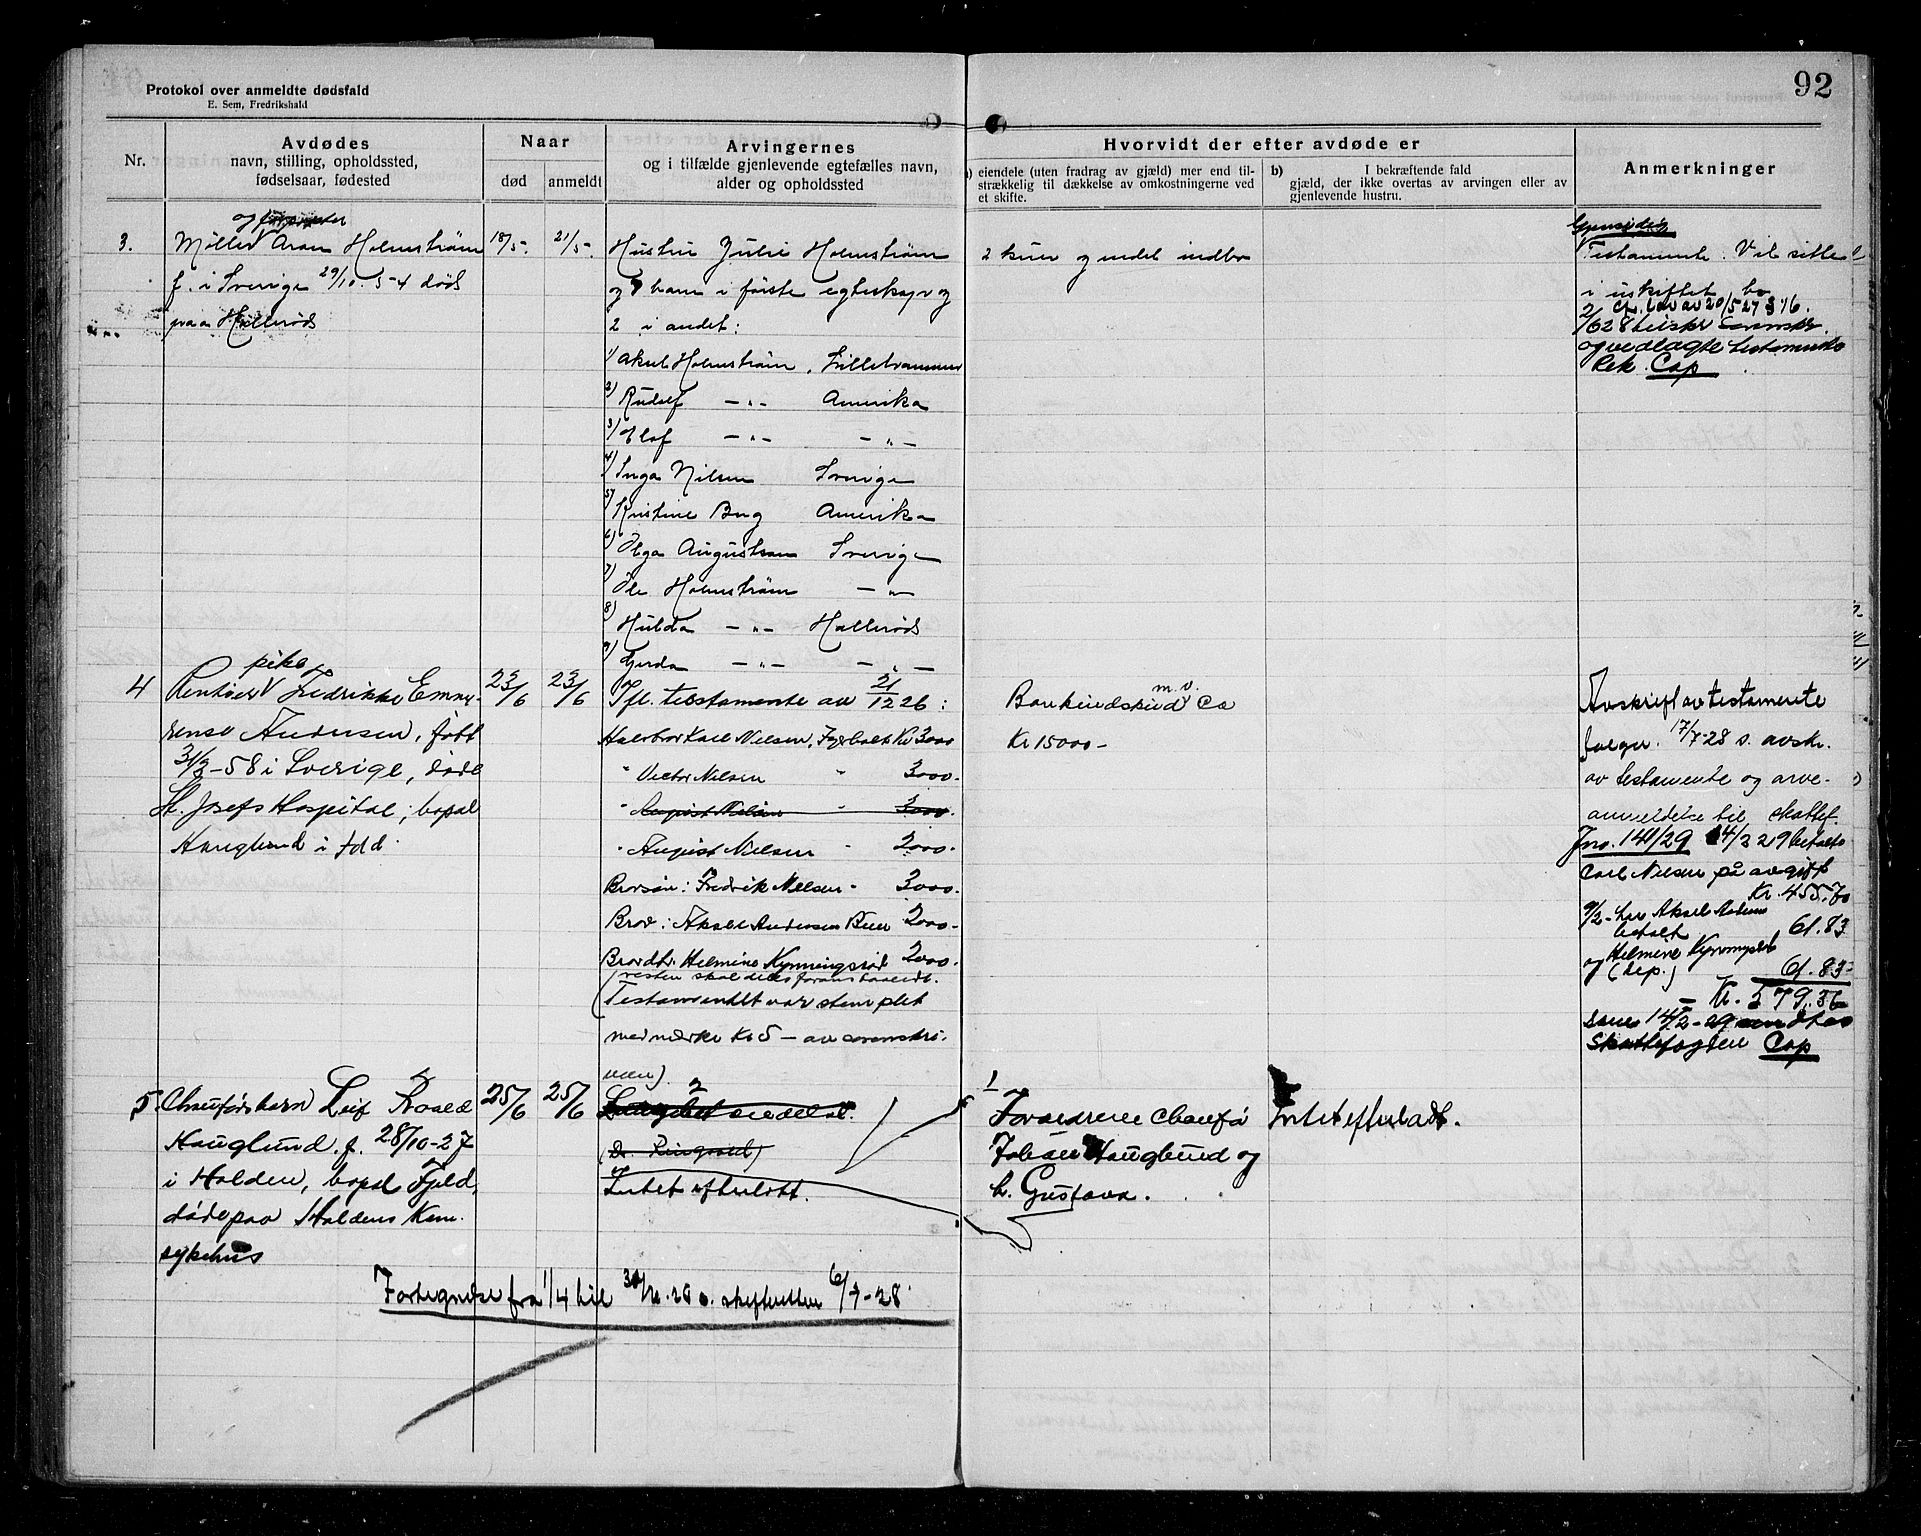 92
Protokol over anmeldte dødsfald
E. Sem, Fredrikshald
Nr.
Avdødes
navn, stilling, opholdssted,
fødselsaar, fødested
Naar
død
anmeldt
Arvingernes
og i tilfælde gjenlevende egtefælles navn,
alder og opholdssted
Hvorvidt der efter avdøde er
a) eiendele (uten fradrag av gjæld) mer end til-
strækkelig til dækkelse av omkostningerne ved
et skifte.
b) I bekræftende fald
gjæld, der ikke overtas av arvingen eller av
gjenlevende hustru.
Anmerkninger
og
3. Møller Aron Holmstrøm
f. i Sverige 29/10.54 død
paa Hallerød
18/5. 21/5.
Hustru Julie Holmstrøm
og barn i første egteskap og
2 i andet:
1) Aksel Holmstrøm, Lilletrammen
2) Rudolf —"— Amerika
3) Olof —"— —"—
4) Inga Nilsen Sverige
5) Kristine Berg Amerika
6) Olga Augustson Sverige
7) Ole Holmstrøm —"—
8) Hulda —"— Hallerød
9) Gerda —"— —"—
2 kuer og endel indbo
Gjensidig
Testamente. Vil sitte
i uskiftet bo
Cap
pike
4 Rentier Fredrikke Emme-
rense Andersen, født
31/3-58 i Sverige, døde
St. Josefs Hospital; bopæl
Hauglund i Idd.
23/6 23/6
Ifl. testamente av 21/12 26:
Halvbror Karl Nielsen, Kr 3000
" Victor Nielsen " 3000.
" August Nielsen " 3000.
" August Nielsen " 2000.
Brorsøn: Fredrik Nielsen " 3000.
Bror: Aksel Andersen Buer 2000.
Brordtr. Helmine Kynningsrød 2000.
(resten skal deles
(Testamentet var stemplet
med merke Kr 5 — av sorenskri-
veren).
m.v.
Bankindskud Ca
Kr 15000-
Avskrift av testamente
følger. 17/7-28 s. avskr.
av testamente og arve-
anmeldelse til skattef.
Jno. 141/29 4/2 29 betalte
Carl Nielsen på avgift
Kr. 455,70
9/2- her Aksel Anders
betalt 61.83
og Helmine
(dep.) 61.83
Kr. 579.36
14/2-29 sendt
Skattefogden Cap
5. Chaufførbarn Leif Roald
Hauglund. f. 28/10-27
i Halden, bopæl Fjeld,
døde paa Haldens Kom.
sykehus
25/6 25/6
2
Intet efterlatt.
1
Forældrene chauffør
Johan Hauglund og
h. Gustava.
Intet efterladt.
Fortegnelse fra 1/4 til 30/6.28 s. skifteretten 6/7-28